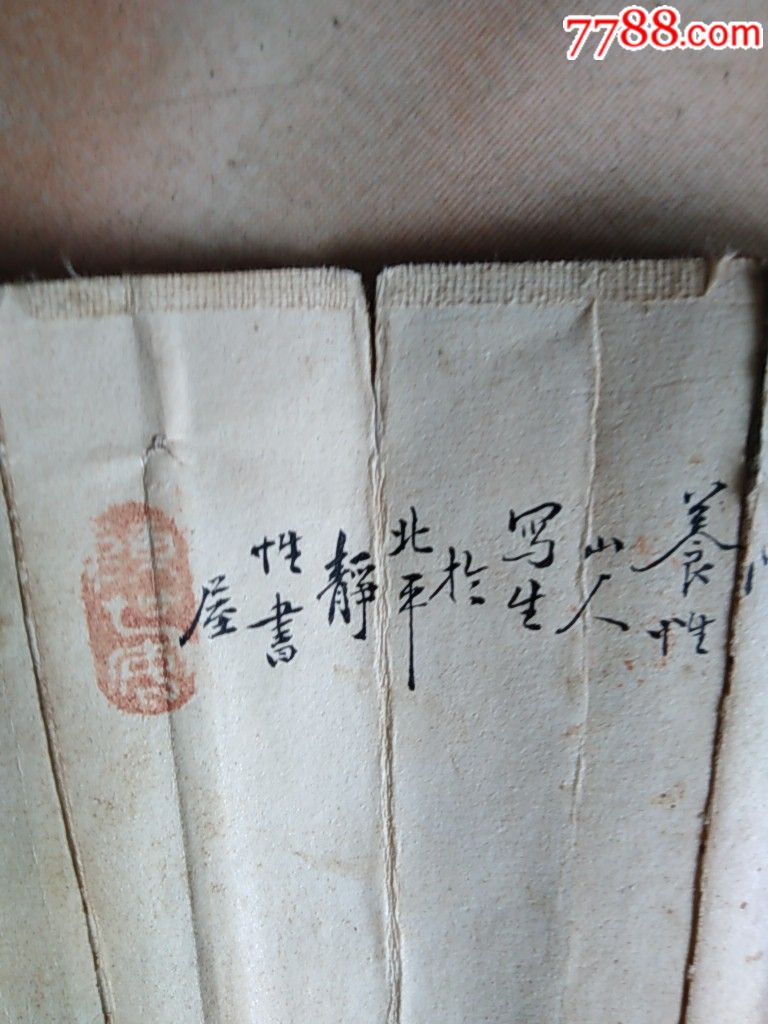 7788.com
養性
山人
写生
於
北平
靜
性書
屋